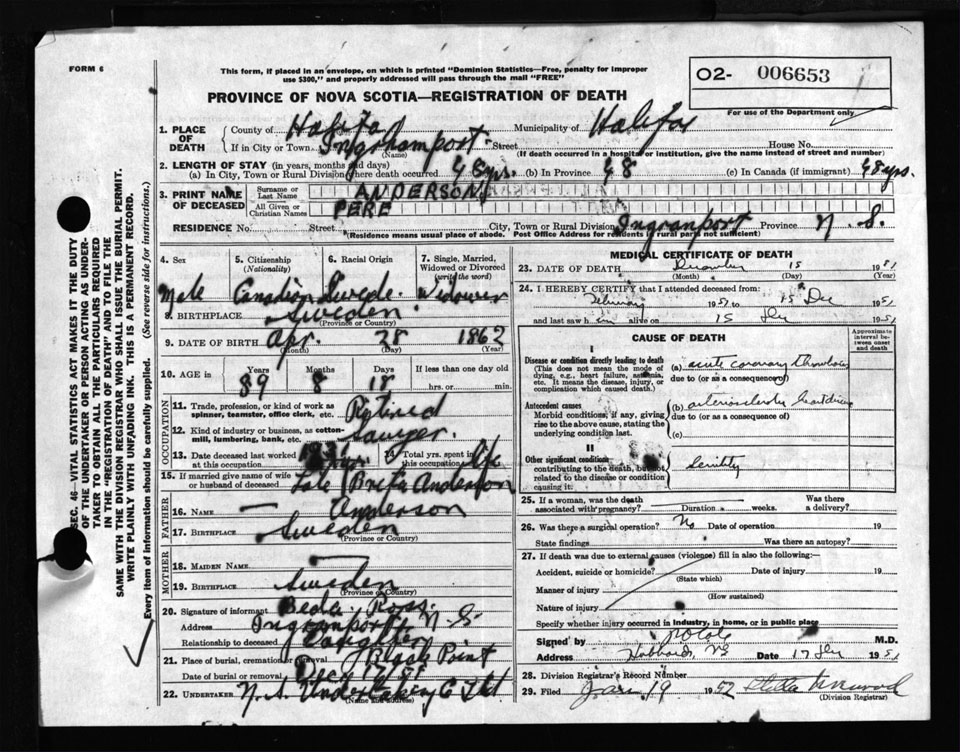 FORM 6
This form, if placed in an envelope, on which is printed "Dominion Statistics—Free, penalty for improper
use $300," and properly addressed will pass through the mail "FREE"
02- 006653
For use of the Department only
PROVINCE OF NOVA SCOTIA—REGISTRATION OF DEATH
1. PLACE OF DEATH
County of Halifax Municipality of Halifax
If in City or Town Ingrhamport Street House No.
(Name) (If death occurred in a hospital or institution, give the name instead of street and number)
2. LENGTH OF STAY (in years, months and days)
(a) In City, Town or Rural Division where death occurred 48 yrs. (b) In Province 48 (c) In Canada (if immigrant) 48 yrs.
3. PRINT NAME OF DECEASED
Surname or Last Name ANDERSON
All Given or Christian Names PERE
RESIDENCE No. Street City, Town or Rural Division Ingranport Province N. S.
(Residence means usual place of abode. Post Office Address for residents in rural parts not sufficient)
4. Sex Male
5. Citizenship (Nationality) Canadian
6. Racial Origin Swede
7. Single, Married, Widowed or Divorced (write the word) Widower
8. BIRTHPLACE Sweden
(Province or Country)
9. DATE OF BIRTH Apr. 28 1862
(Month) (Day) (Year)
10. AGE in Years Months Days If less than one day old
89 8 18 hrs. or min.
OCCUPATION
11. Trade, profession, or kind of work as spinner, teamster, office clerk, etc. Retired
12. Kind of industry or business, as cotton-mill, lumbering, bank, etc. Sawyer
13. Date deceased last worked at this occupation
14. Total yrs. spent in this occupation life
15. If married give name of wife or husband of deceased Late Anderson
FATHER
16. Name — Anderson
17. Birthplace Sweden
(Province or Country)
MOTHER
18. MAIDEN NAME —
19. BIRTHPLACE Sweden
(Province or Country)
20. Signature of informant Beda Ross
Address Ingranport N S
Relationship to deceased Daughter
21. Place of burial, cremation or removal Point
Date of burial or removal Dec
22. UNDERTAKER N.S. Undertaking C Ltd
(Name and address)
MEDICAL CERTIFICATE OF DEATH
23. DATE OF DEATH December 15 1951
(Month) (Day) (Year)
24. I HEREBY CERTIFY that I attended deceased from:
February 1951 to 15 Dec 1951
and last saw him alive on 15 Dec 1951
CAUSE OF DEATH
Approximate interval between onset and death
I
Disease or condition directly leading to death
(This does not mean the mode of dying, e.g., heart failure, asthenia, etc. It means the disease, injury, or complication which caused death.)
(a) acute coronary thrombosis
due to (or as a consequence of)
Antecedent causes
Morbid conditions, if any, giving rise to the above cause, stating the underlying condition last.
(b) arteriosclerotic heart disease
due to (or as a consequence of)
(c)
II
Other significant conditions contributing to the death, but not related to the disease or condition causing it.
Senility
25. If a woman, was the death associated with pregnancy? Duration weeks. Was there a delivery?
26. Was there a surgical operation? No Date of operation 19
State findings Was there an autopsy?
27. If death was due to external causes (violence) fill in also the following:
Accident, suicide or homicide? Date of injury 19
(State which)
Manner of injury
(How sustained)
Nature of injury
Specify whether injury occurred in industry, in home, or in public place
Signed by M.D.
Address Hubbards, NS Date 17 Dec 1951
28. Division Registrar's Record Number
29. Filed Jan. 19 1952
(Division Registrar)
SEC. 46—VITAL STATISTICS ACT MAKES IT THE DUTY
OF THE UNDERTAKER OR PERSON ACTING AS UNDER-
TAKER TO OBTAIN ALL THE PARTICULARS REQUIRED
IN THE "REGISTRATION OF DEATH" AND TO FILE THE
SAME WITH THE DIVISION REGISTRAR WHO SHALL ISSUE THE BURIAL PERMIT.
WRITE PLAINLY WITH UNFADING INK. THIS IS A PERMANENT RECORD.
Every item of information should be carefully supplied. (See reverse side for instructions.)